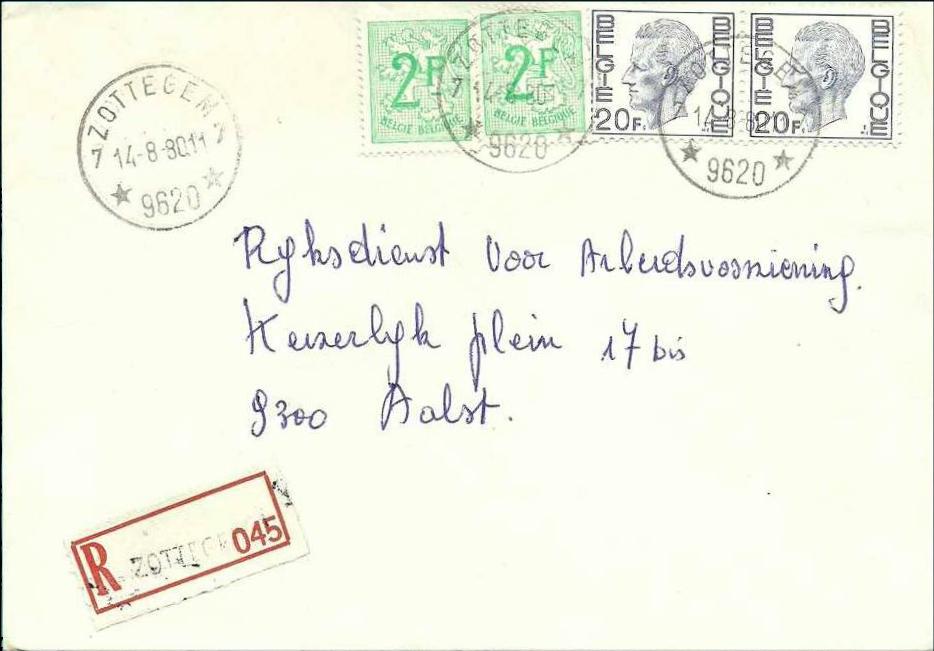 2F
BELGIE BELGIQUE
2F
BELGIE BELGIQUE
BELGIE BELGIQUE
20F.
BELGIE BELGIQUE
20F.
ZOTTEGEM
7 14-8-80.11 7
9620
ZOTTEGEM
7 14-8-80
9620
14-8-80.11
9620
Ryksdienst Voor Arbeidsvoorziening.
Keizerlyk plein 17 bis
9300 Aalst.
R ZOTTEGEM 045